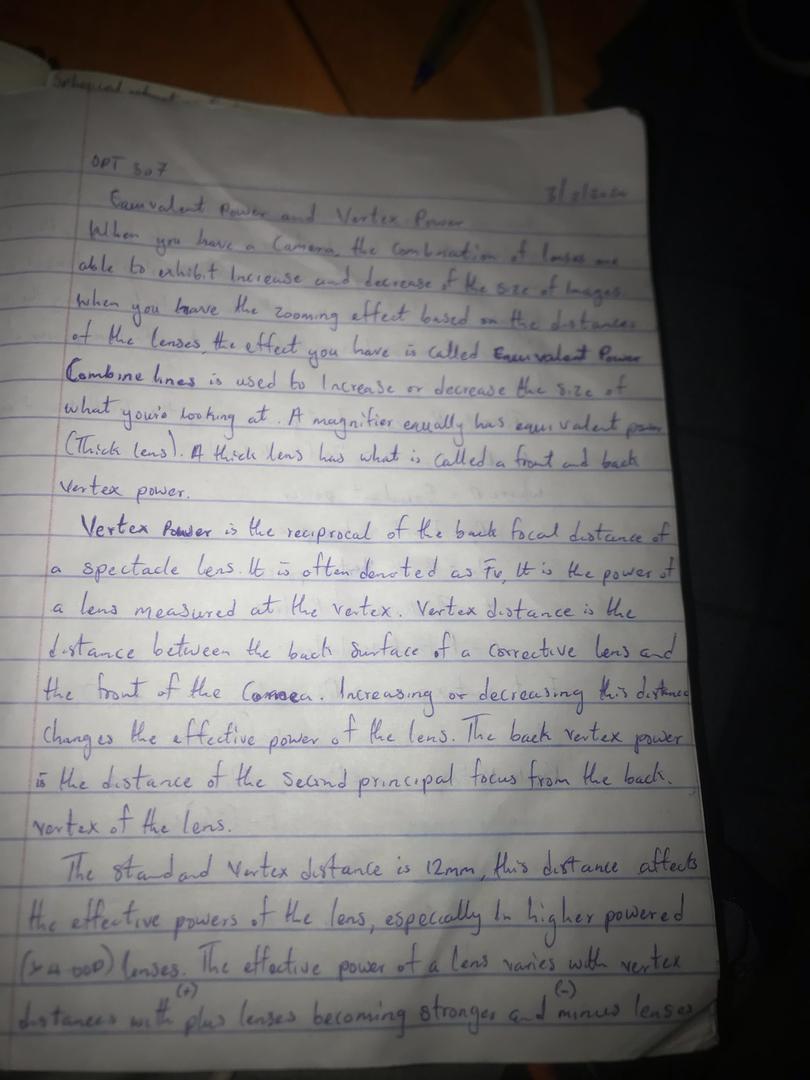 Spherical
OPT 307
3/2/2020
Equivalent Power and Vertex Power
When you have a Camera, the Combination of lenses are
able to exhibit Increase and decrease of the size of Images.
When you have the zooming effect based on the distances
of the lenses, the effect you have is called Equivalent Power
Combine lines is used to Increase or decrease the size of
what you're looking at. A magnifier equally has equivalent power
(Thick lens). A thick lens has what is called a front and back
Vertex power.
Vertex Power is the reciprocal of the back focal distance of
a spectacle lens. It is often denoted as Fv, It is the power of
a lens measured at the vertex. Vertex distance is the
distance between the back surface of a corrective lens and
the front of the Cornea. Increasing or decreasing this distance
changes the effective power of the lens. The back vertex power
is the distance of the Second principal focus from the back.
vertex of the lens.
The standard Vertex distance is 12mm, this distance affects
the effective powers of the lens, especially In higher powered
(>4.00D) lenses. The effective power of a lens varies with vertex
(+) (-)
distances with plus lenses becoming stronger and minus lenses